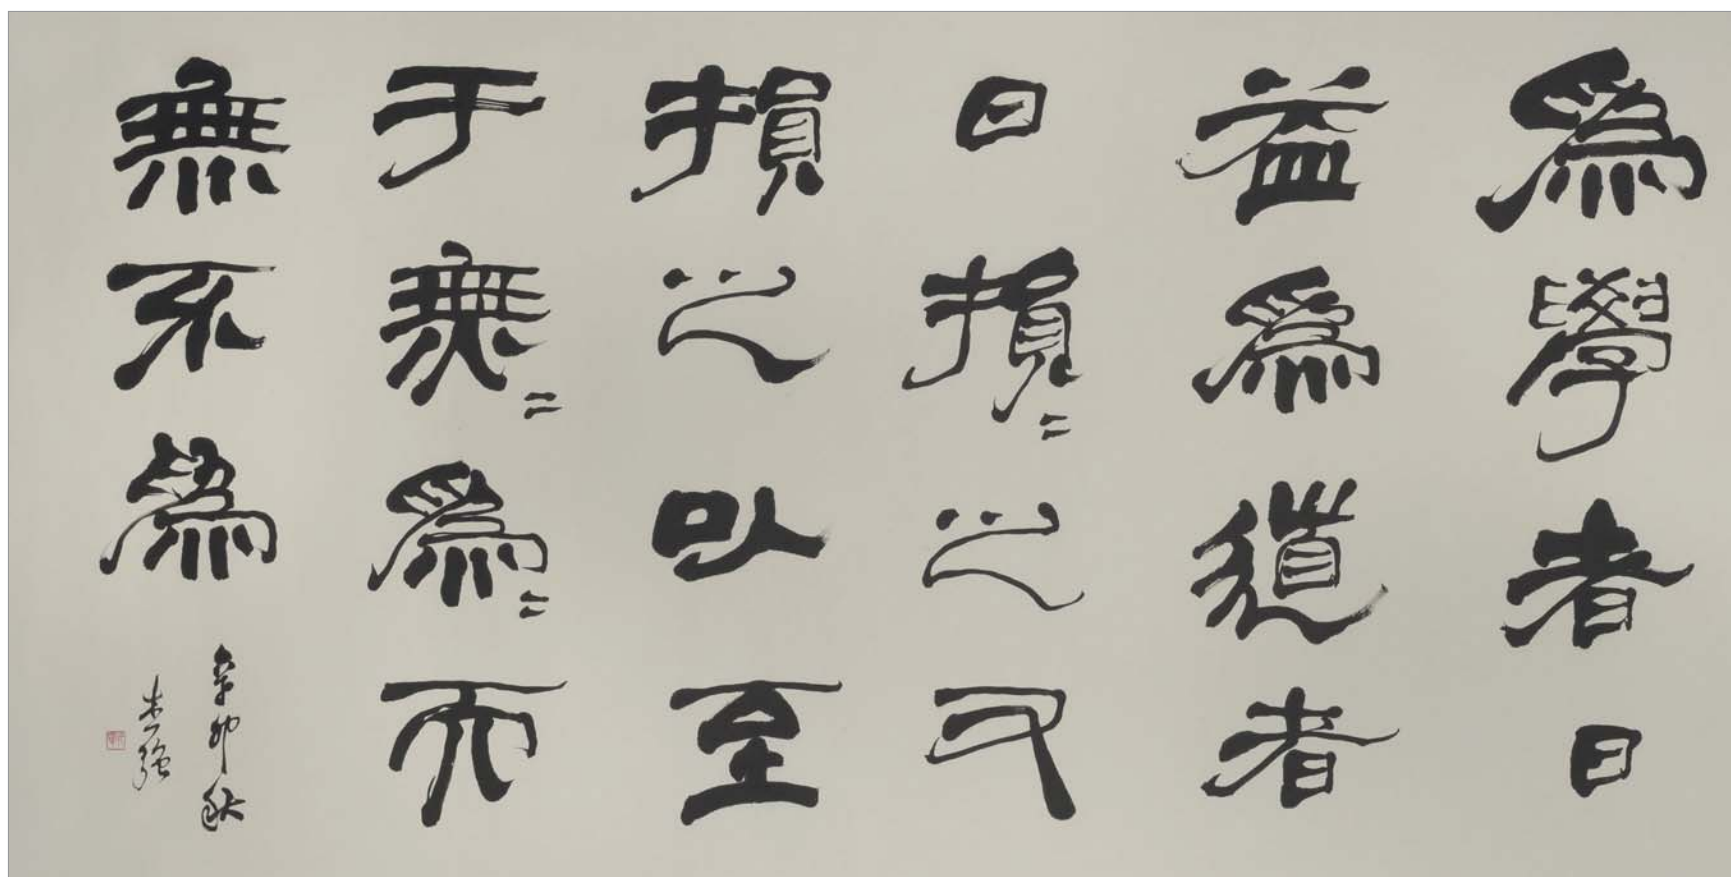 爲學者日
益爲道者
日損〻之又
損之以至
于無〻爲〻而
無不爲
辛卯秋